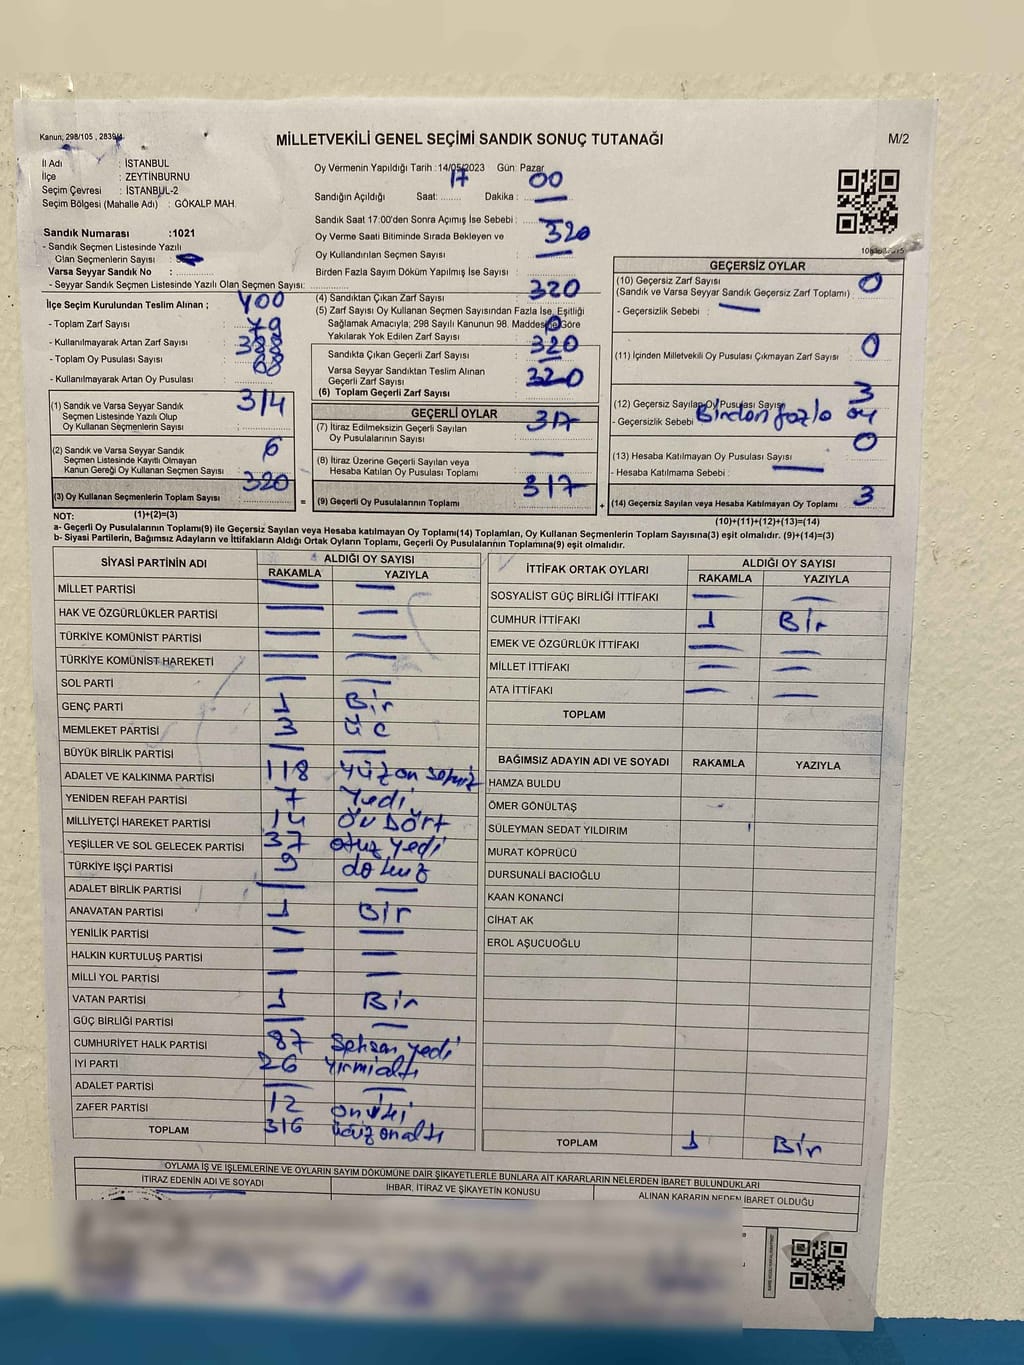 Kanun; 298/105 , 2839/4
MİLLETVEKİLİ GENEL SEÇİMİ SANDIK SONUÇ TUTANAĞI
M/2
İl Adı : İSTANBUL
İlçe : ZEYTİNBURNU
Seçim Çevresi : İSTANBUL-2
Seçim Bölgesi (Mahalle Adı) : GÖKALP MAH.
Sandık Numarası :1021
- Sandık Seçmen Listesinde Yazılı
Olan Seçmenlerin Sayısı :
Varsa Seyyar Sandık No :
- Seyyar Sandık Seçmen Listesinde Yazılı Olan Seçmen Sayısı:
Oy Vermenin Yapıldığı Tarih : 14/05/2023 Gün: Pazar
Sandığın Açıldığı Saat: 17 Dakika : 00
Sandık Saat 17:00'den Sonra Açımış İse Sebebi : —
Oy Verme Saati Bitiminde Sırada Bekleyen ve
Oy Kullandırılan Seçmen Sayısı : 320
Birden Fazla Sayım Döküm Yapılmış İse Sayısı : —
İlçe Seçim Kurulundan Teslim Alınan ;
- Toplam Zarf Sayısı : 400
- Kullanılmayarak Artan Zarf Sayısı : 79
- Toplam Oy Pusulası Sayısı : 388
- Kullanılmayarak Artan Oy Pusulası : 68
(1) Sandık ve Varsa Seyyar Sandık
Seçmen Listesinde Yazılı Olup
Oy Kullanan Seçmenlerin Sayısı : 314
(2) Sandık ve Varsa Seyyar Sandık
Seçmen Listesinde Kayıtlı Olmayan
Kanun Gereği Oy Kullanan Seçmen Sayısı : 6
(3) Oy Kullanan Seçmenlerin Toplam Sayısı : 320
(1)+(2)=(3)
(4) Sandıktan Çıkan Zarf Sayısı : 320
(5) Zarf Sayısı Oy Kullanan Seçmen Sayısından Fazla İse, Eşitliği
Sağlamak Amacıyla; 298 Sayılı Kanunun 98. Maddesine Göre
Yakılarak Yok Edilen Zarf Sayısı : 0
Sandıkta Çıkan Geçerli Zarf Sayısı : 320
Varsa Seyyar Sandıktan Teslim Alınan
Geçerli Zarf Sayısı : —
(6) Toplam Geçerli Zarf Sayısı : 320
GEÇERLİ OYLAR
(7) İtiraz Edilmeksizin Geçerli Sayılan
Oy Pusulalarının Sayısı : 317
(8) İtiraz Üzerine Geçerli Sayılan veya
Hesaba Katılan Oy Pusulası Toplamı : —
= (9) Geçerli Oy Pusulalarının Toplamı : 317
GEÇERSİZ OYLAR
(10) Geçersiz Zarf Sayısı : 0
(Sandık ve Varsa Seyyar Sandık Geçersiz Zarf Toplamı)
- Geçersizlik Sebebi : —
(11) İçinden Milletvekili Oy Pusulası Çıkmayan Zarf Sayısı : 0
(12) Geçersiz Sayılan Oy Pusulası Sayısı : 3
- Geçersizlik Sebebi : Birden fazla oy
(13) Hesaba Katılmayan Oy Pusulası Sayısı : 0
- Hesaba Katılmama Sebebi : —
+ (14) Geçersiz Sayılan veya Hesaba Katılmayan Oy Toplamı : 3
(10)+(11)+(12)+(13)=(14)
NOT:
a- Geçerli Oy Pusulalarının Toplamı(9) ile Geçersiz Sayılan veya Hesaba katılmayan Oy Toplamı(14) Toplamları, Oy Kullanan Seçmenlerin Toplam Sayısına(3) eşit olmalıdır. (9)+(14)=(3)
b- Siyasi Partilerin, Bağımsız Adayların ve İttifakların Aldığı Ortak Oyların Toplamı, Geçerli Oy Pusulalarının Toplamına(9) eşit olmalıdır.
SİYASİ PARTİNİN ADI ALDIĞI OY SAYISI
RAKAMLA YAZIYLA
MİLLET PARTİSİ — —
HAK VE ÖZGÜRLÜKLER PARTİSİ — —
TÜRKİYE KOMÜNİST PARTİSİ — —
TÜRKİYE KOMÜNİST HAREKETİ — —
SOL PARTİ — —
GENÇ PARTİ 1 Bir
MEMLEKET PARTİSİ 3 üç
BÜYÜK BİRLİK PARTİSİ — —
ADALET VE KALKINMA PARTİSİ 118 yüz on sekiz
YENİDEN REFAH PARTİSİ 7 Yedi
MİLLİYETÇİ HAREKET PARTİSİ 14 On Dört
YEŞİLLER VE SOL GELECEK PARTİSİ 37 otuz yedi
TÜRKİYE İŞÇİ PARTİSİ 9 dokuz
ADALET BİRLİK PARTİSİ — —
ANAVATAN PARTİSİ 1 Bir
YENİLİK PARTİSİ — —
HALKIN KURTULUŞ PARTİSİ — —
MİLLİ YOL PARTİSİ — —
VATAN PARTİSİ 1 Bir
GÜÇ BİRLİĞİ PARTİSİ — —
CUMHURİYET HALK PARTİSİ 87 Seksen yedi
İYİ PARTİ 26 yirmialtı
ADALET PARTİSİ — —
ZAFER PARTİSİ 12 on iki
TOPLAM 316 üçyüz onaltı
İTTİFAK ORTAK OYLARI ALDIĞI OY SAYISI
RAKAMLA YAZIYLA
SOSYALİST GÜÇ BİRLİĞİ İTTİFAKI — —
CUMHUR İTTİFAKI 1 Bir
EMEK VE ÖZGÜRLÜK İTTİFAKI — —
MİLLET İTTİFAKI — —
ATA İTTİFAKI — —
TOPLAM
BAĞIMSIZ ADAYIN ADI VE SOYADI RAKAMLA YAZIYLA
HAMZA BULDU
ÖMER GÖNÜLTAŞ
SÜLEYMAN SEDAT YILDIRIM
MURAT KÖPRÜCÜ
DURSUNALİ BACIOĞLU
KAAN KONANCİ
CİHAT AK
EROL AŞUCUOĞLU
TOPLAM 1 Bir
OYLAMA İŞ VE İŞLEMLERİNE VE OYLARIN SAYIM DÖKÜMÜNE DAİR ŞİKAYETLERLE BUNLARA AİT KARARLARIN NELERDEN İBARET BULUNDUKLARI
İTİRAZ EDENİN ADI VE SOYADI İHBAR, İTİRAZ VE ŞİKAYETİN KONUSU ALINAN KARARIN NEDEN İBARET OLDUĞU